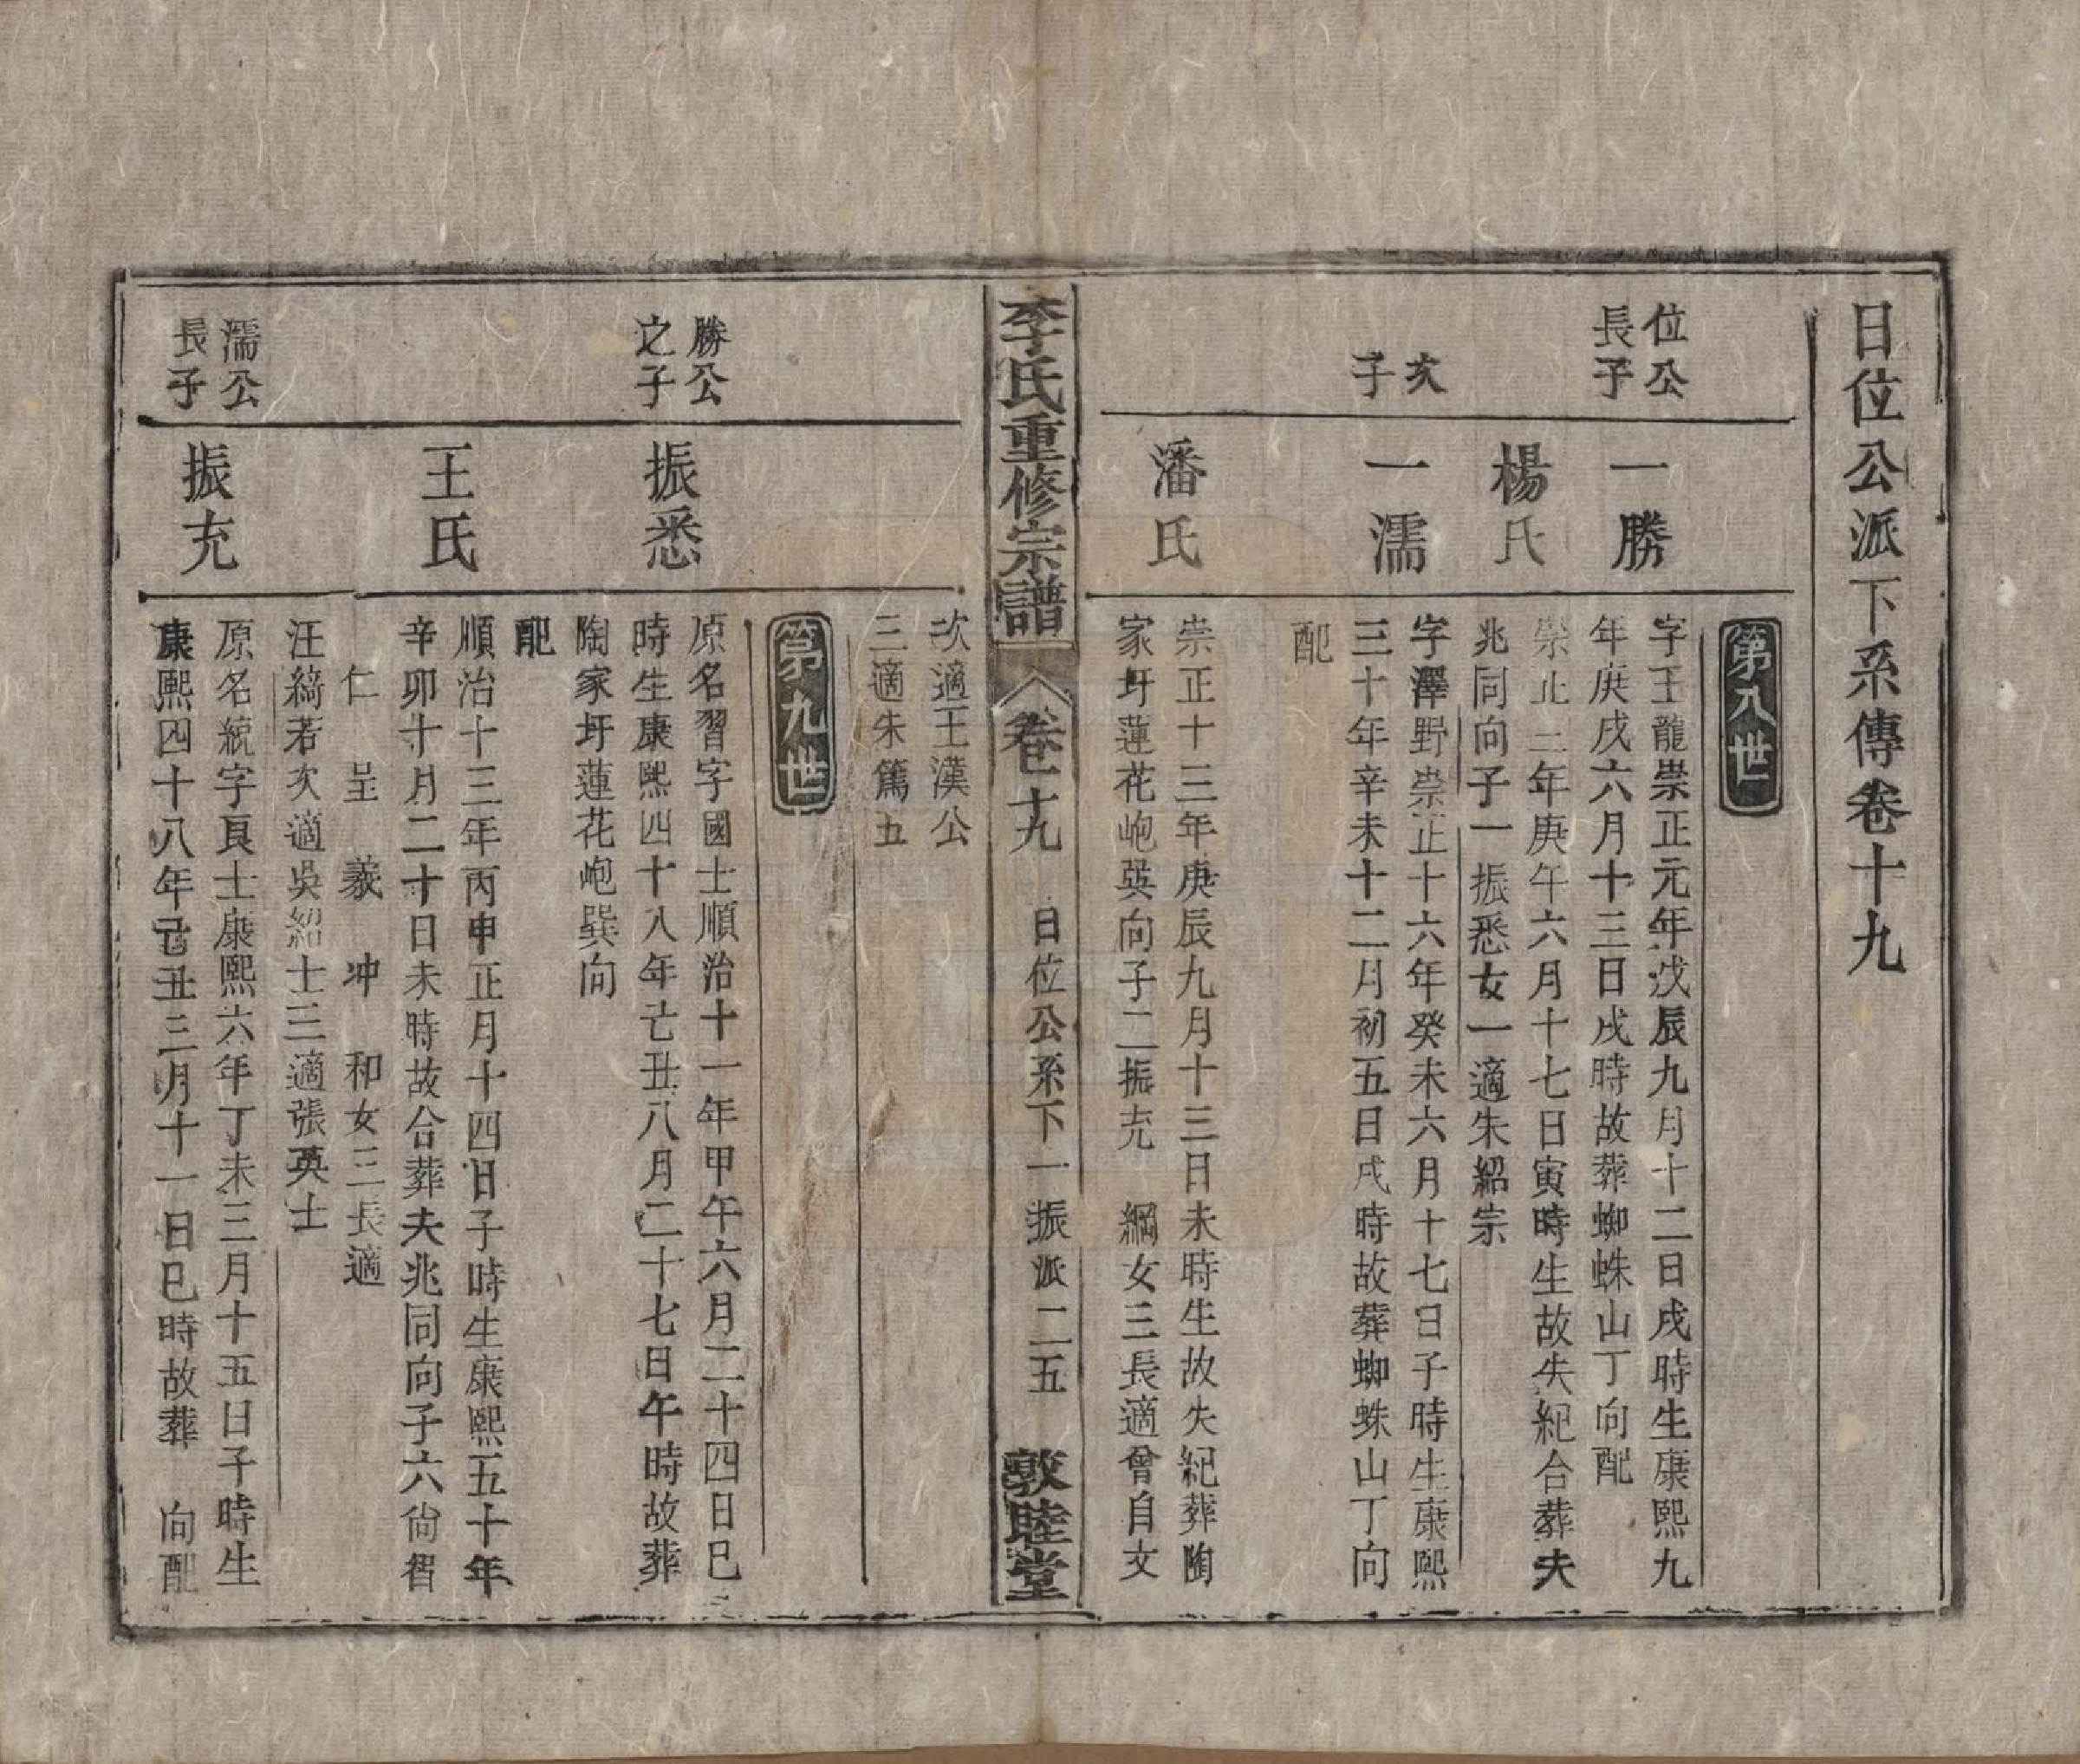 日位公派下系傳卷十九
第八世
位公
長子
一勝
字王龍崇正元年戊辰九月十二日戌時生康熙九
年庚戌六月十三日戌時故葬蜘蛛山丁向配
楊氏
崇正三年庚午六月十七日寅時生故失紀合葬夫
兆同向子一振悉女一適朱紹宗
次
子
一濡
字澤野崇正十六年癸未六月十七日子時生康熙
三十年辛未十二月初五日戌時故葬蜘蛛山丁向
配
潘氏
崇正十三年庚辰九月十三日未時生故失紀葬陶
家圩蓮花峗巽向子二振充 綱女三長適曾自文
李氏重修宗譜 卷十九 日位公系下一振派二五 敦睦堂
次適王漢公
三適朱篤五
第九世
勝公
之子
振悉
原名習字國士順治十一年甲午六月二十四日巳
時生康熙四十八年己丑八月二十七日午時故葬
陶家圩蓮花峗巽向
配
王氏
順治十三年丙申正月十四日子時生康熙五十年
辛卯十月二十日未時故合葬夫兆同向子六尙智
仁 呈 羲 冲 和女三長適
汪綺若次適吳紹士三適張英士
濡公
長子
振充
原名統字貢士康熙六年丁未三月十五日子時生
康熙四十八年己丑三月十一日巳時故葬 向配